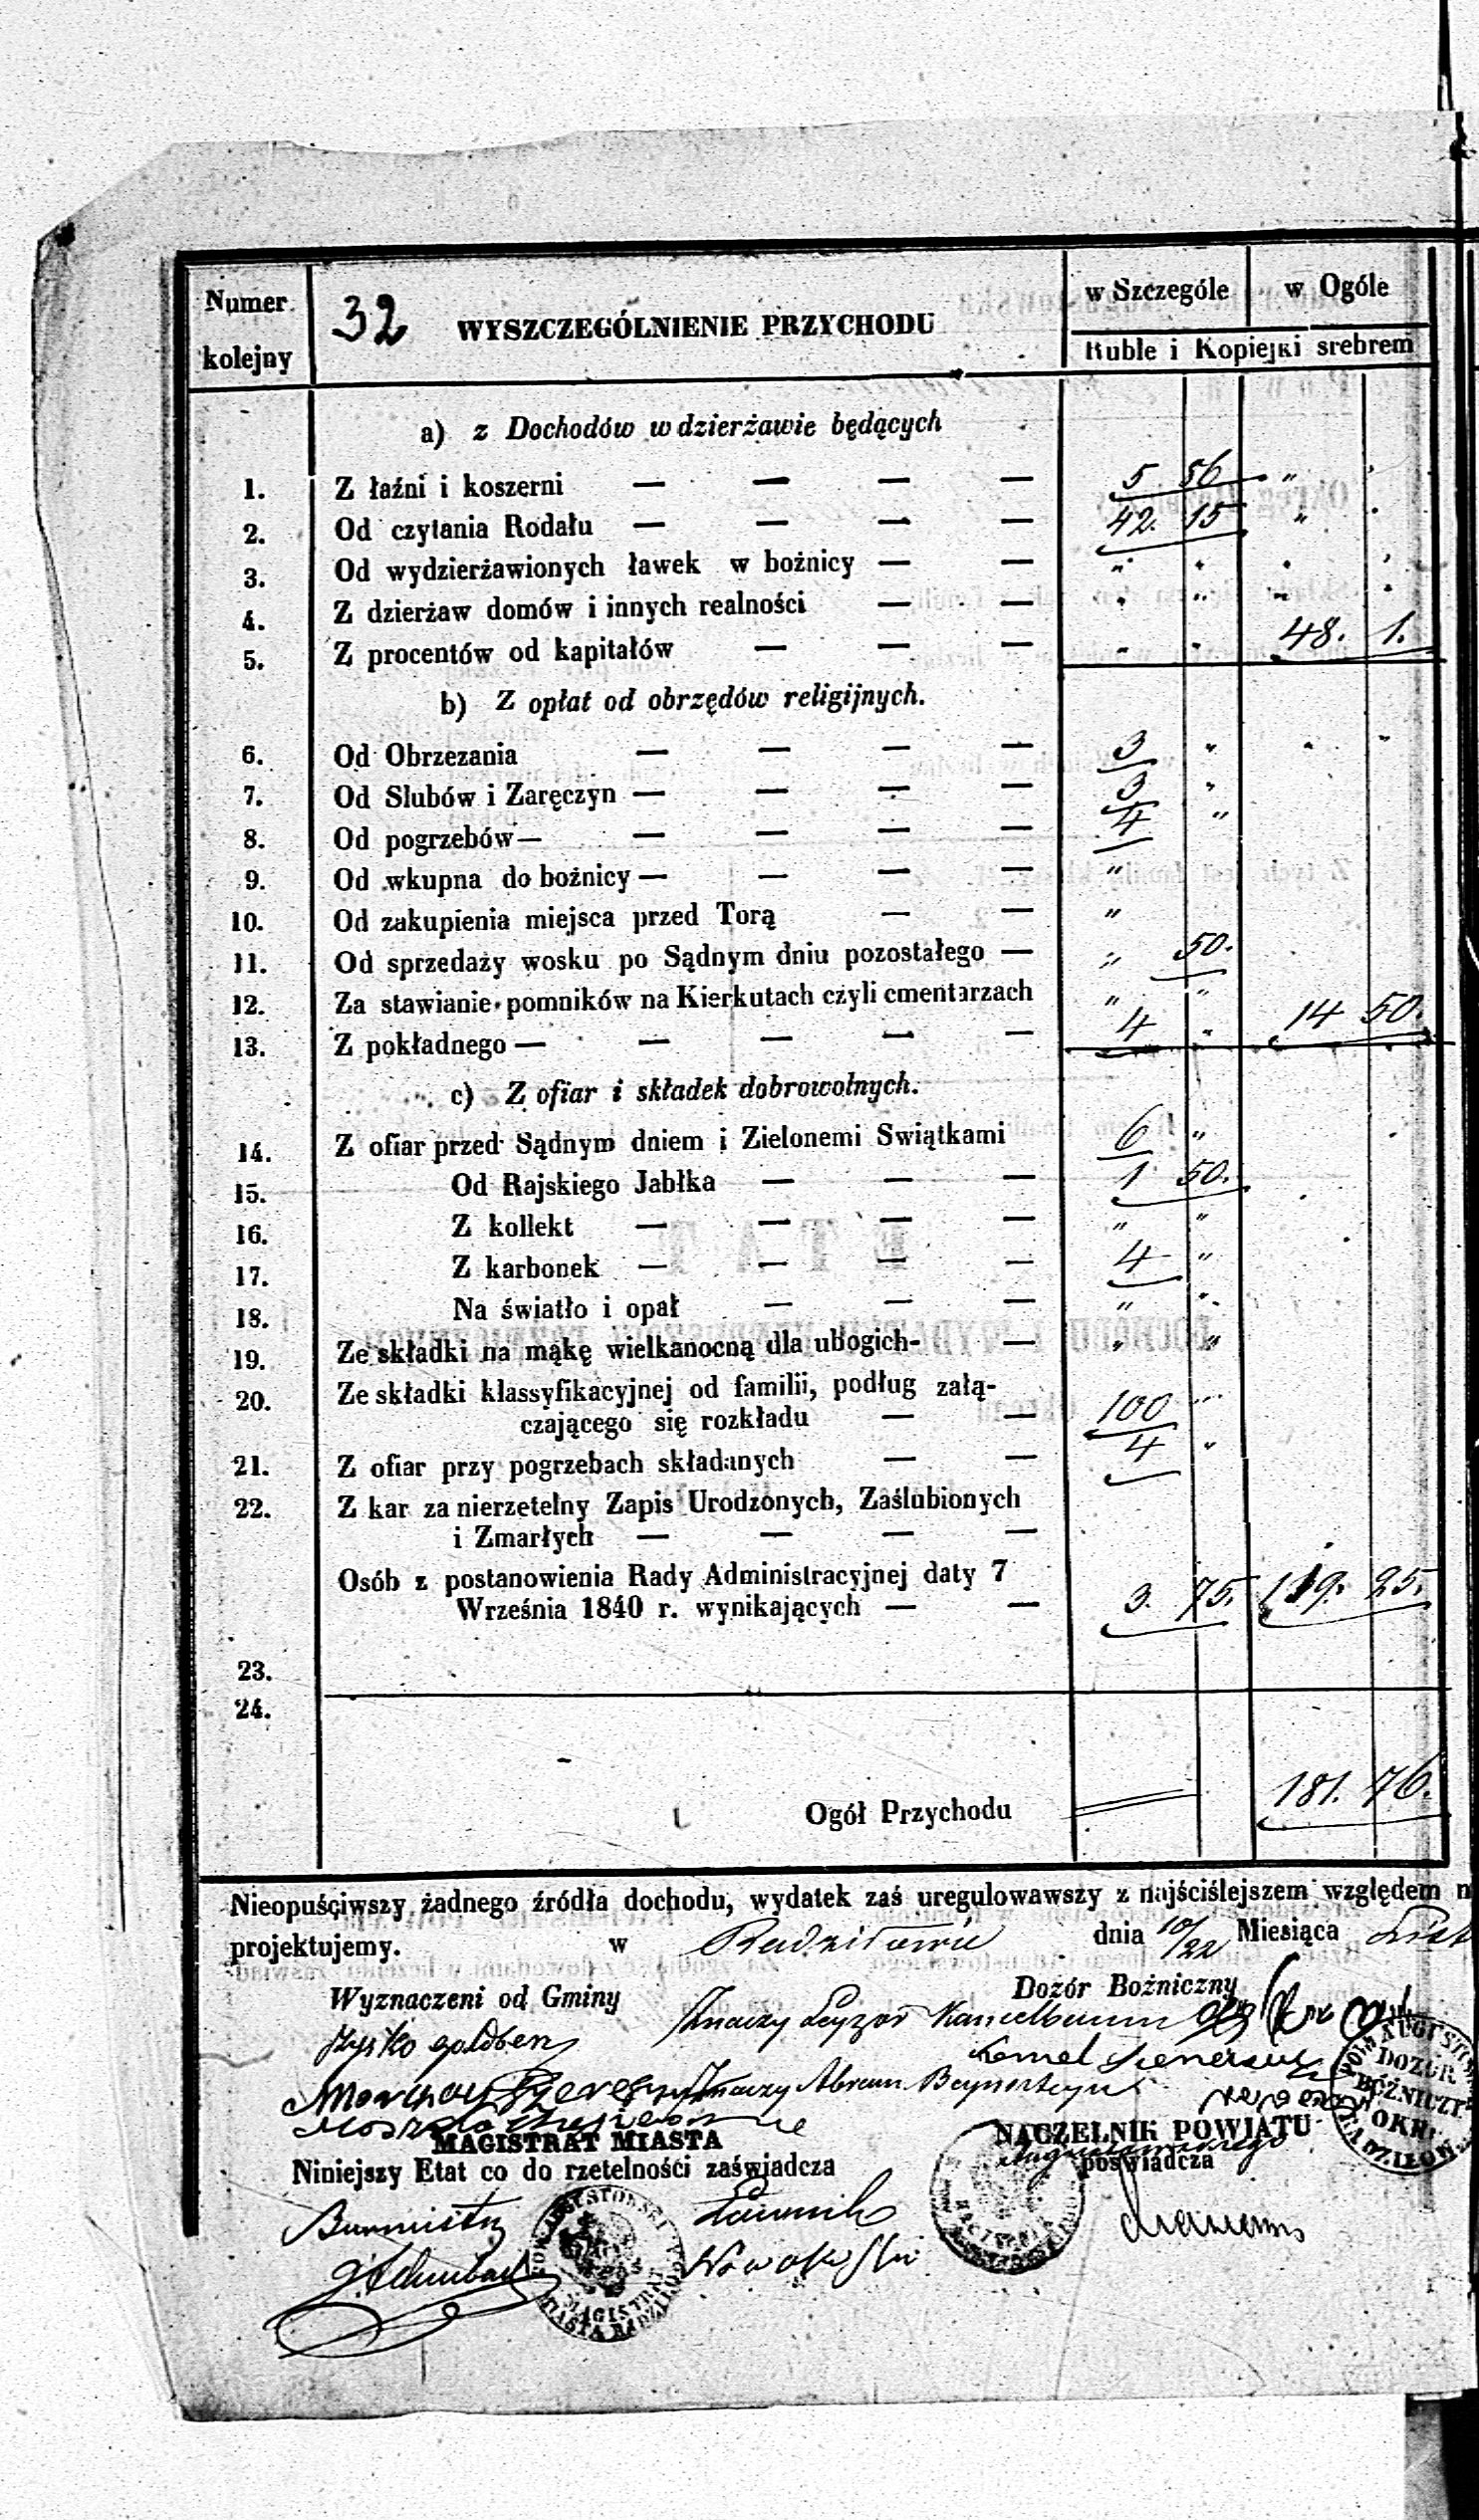 Numer kolejny
32
WYSZCZEGÓLNIENIE PRZYCHODU
w Szczególe w Ogóle
Ruble i Kopiejki srebrem
a) z Dochodów w dzierżawie będących
1. Z łaźni i koszerni — — — — 5 56 " "
2. Od czytania Rodału — — — — 42. 15 " "
3. Od wydzierżawionych ławek w bożnicy — — " " " "
4. Z dzierżaw domów i innych realności — — " " " "
5. Z procentów od kapitałów — — — " " 48. 1.
b) Z opłat od obrzędów religijnych.
6. Od Obrzezania — — — — 3 " " "
7. Od Slubów i Zaręczyn — — — — 3 "
8. Od pogrzebów — — — — — 4 "
9. Od wkupna do bożnicy — — — — "
10. Od zakupienia miejsca przed Torą — — "
11. Od sprzedaży wosku po Sądnym dniu pozostałego — " 50.
12. Za stawianie pomników na Kierkutach czyli cmentarzach " "
13. Z pokładnego — — — — — 4 " 14 50.
c) Z ofiar i składek dobrowolnych.
14. Z ofiar przed Sądnym dniem i Zielonemi Swiątkami 6 "
15. Od Rajskiego Jabłka — — — 1 50.
16. Z kollekt — — — — " "
17. Z karbonek — — — — 4 "
18. Na światło i opał — — — " "
19. Ze składki na mąkę wielkanocną dla ubogich- — " "
20. Ze składki klassyfikacyjnej od familii, podług załą-
czającego się rozkładu — — 100 "
21. Z ofiar przy pogrzebach składanych — — 4 "
22. Z kar za nierzetelny Zapis Urodzonych, Zaślubionych
i Zmarłych — — — —
Osób z postanowienia Rady Administracyjnej daty 7
Września 1840 r. wynikających — — 3. 75. 119. 25.
23.
24.
Ogół Przychodu 181. 76.
Nieopuściwszy żadnego źródła dochodu, wydatek zaś uregulowawszy z najściślejszem względem n
projektujemy. w Radziłowie dnia 10/22 Miesiąca List
Wyznaczeni od Gminy Dozór Bożniczny
Leyzor
Abram
MAGISTRAT MIASTA
NACZELNIK POWIATU
Augustowskiego
Niniejszy Etat co do rzetelności zaświadcza
poświadcza
Burmistrz
Ławnik
Nowowski
DOZÓR
BÓŻNICZY
OKR:
MAGISTRAT
MIASTA RADZIŁO